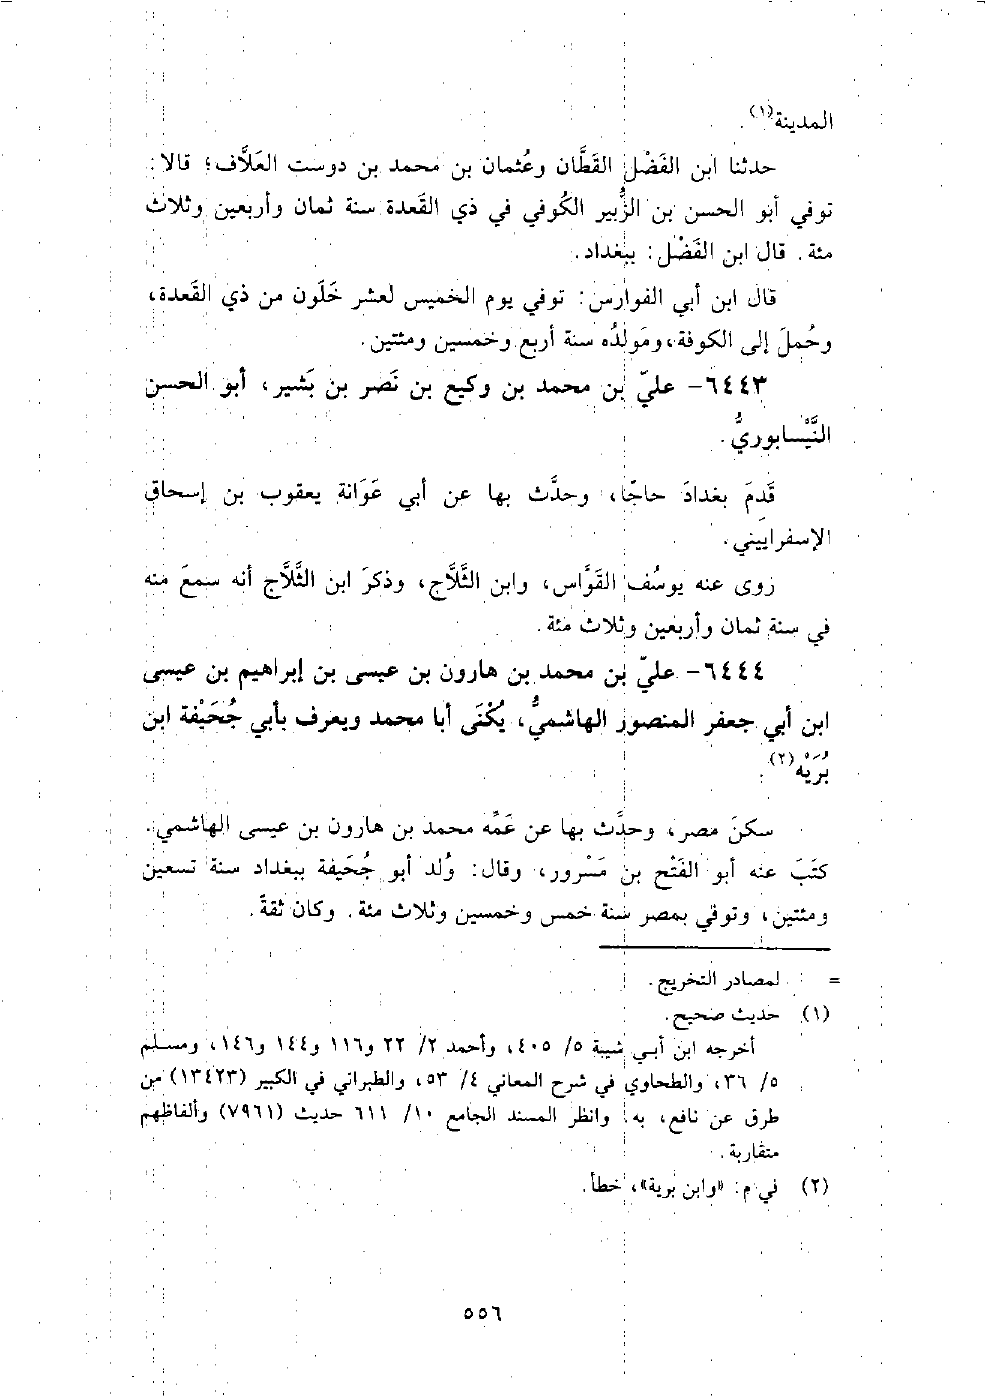 المدينة(١).
حدثنا ابن الفَضْل القَطَّان وعُثمان بن محمد بن دوست العَلَّاف؛ قالا:
توفي أبو الحسن بن الزُّبير الكُوفي في ذي القَعدة سنة ثمان وأربعين وثلاث
مئة. قال ابن الفَضْل: ببغداد.
قال ابن أبي الفوارس: توفي يوم الخميس لعشر خَلَون من ذي القَعدة،
وحُملَ إلى الكوفة، ومَولدُه سنة أربع وخمسين ومئتين.
٦٤٤٣- عليّ بن محمد بن وكيع بن نَصر بن بَشير، أبو الحسن
النَّيْسابوريُّ.
قَدِمَ بغدادَ حاجًا، وحدَّث بها عن أبي عَوَانة يعقوب بن إسحاق
الإسفراييني.
روى عنه يوسُف القَوَّاس، وابن الثَّلَّاج، وذكرَ ابن الثَّلَّاج أنه سمعَ منه
في سنة ثمان وأربعين وثلاث مئة.
٦٤٤٤- عليّ بن محمد بن هارون بن عيسى بن إبراهيم بن عيسى
ابن أبي جعفر المنصور الهاشميُّ، يُكْنَى أبا محمد ويعرف بأبي جُحَيْفة ابن
بُرَيْه(٢).
سكنَ مصر، وحدَّث بها عن عَمِّه محمد بن هارون بن عيسى الهاشمي.
كتَبَ عنه أبو الفَتْح بن مَسْرور، وقال: وُلد أبو جُحَيفة ببغداد سنة تسعين
ومئتين، وتوفي بمصر سنة خمس وخمسين وثلاث مئة. وكان ثقةً.
= لمصادر التخريج.
(١) حديث صحيح.
أخرجه ابن أبي شيبة ٥/ ٤٠٥، وأحمد ٢/ ٢٢ و١١٦ و١٤٤ و١٤٦، ومسلم
٥/ ٣٦، والطحاوي في شرح المعاني ٤/ ٥٣، والطبراني في الكبير (١٣٤٢٣) من
طرق عن نافع، به. وانظر المسند الجامع ١٠/ ٦١١ حديث (٧٩٦١) وألفاظهم
متقاربة.
(٢) في م: «وابن برية»، خطأ.
٥٥٦